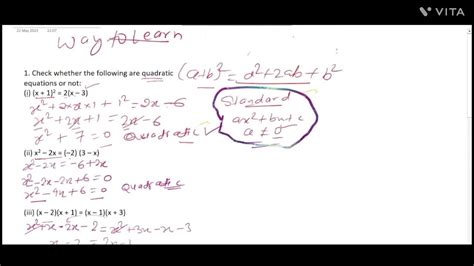 VITA
22 May 2023 11:07
way to Learn
1. Check whether the following are quadratic
equations or not:
(a+b)² = a²+2ab+b²
(i) (x + 1)² = 2(x – 3)
x²+2×x×1+1² = 2x-6
x²+2x+1 = 2x-6
x² + 7 = 0 Quadratic ✓
Standard
ax²+bx+c
a ≠ 0
(ii) x² – 2x = (–2) (3 – x)
x²-2x = -6+2x
x²-2x-2x+6=0
x²-4x+6=0 Quadratic
(iii) (x – 2)(x + 1) = (x – 1)(x + 3)
x²+x-2x-2 = x²+3x-x-3